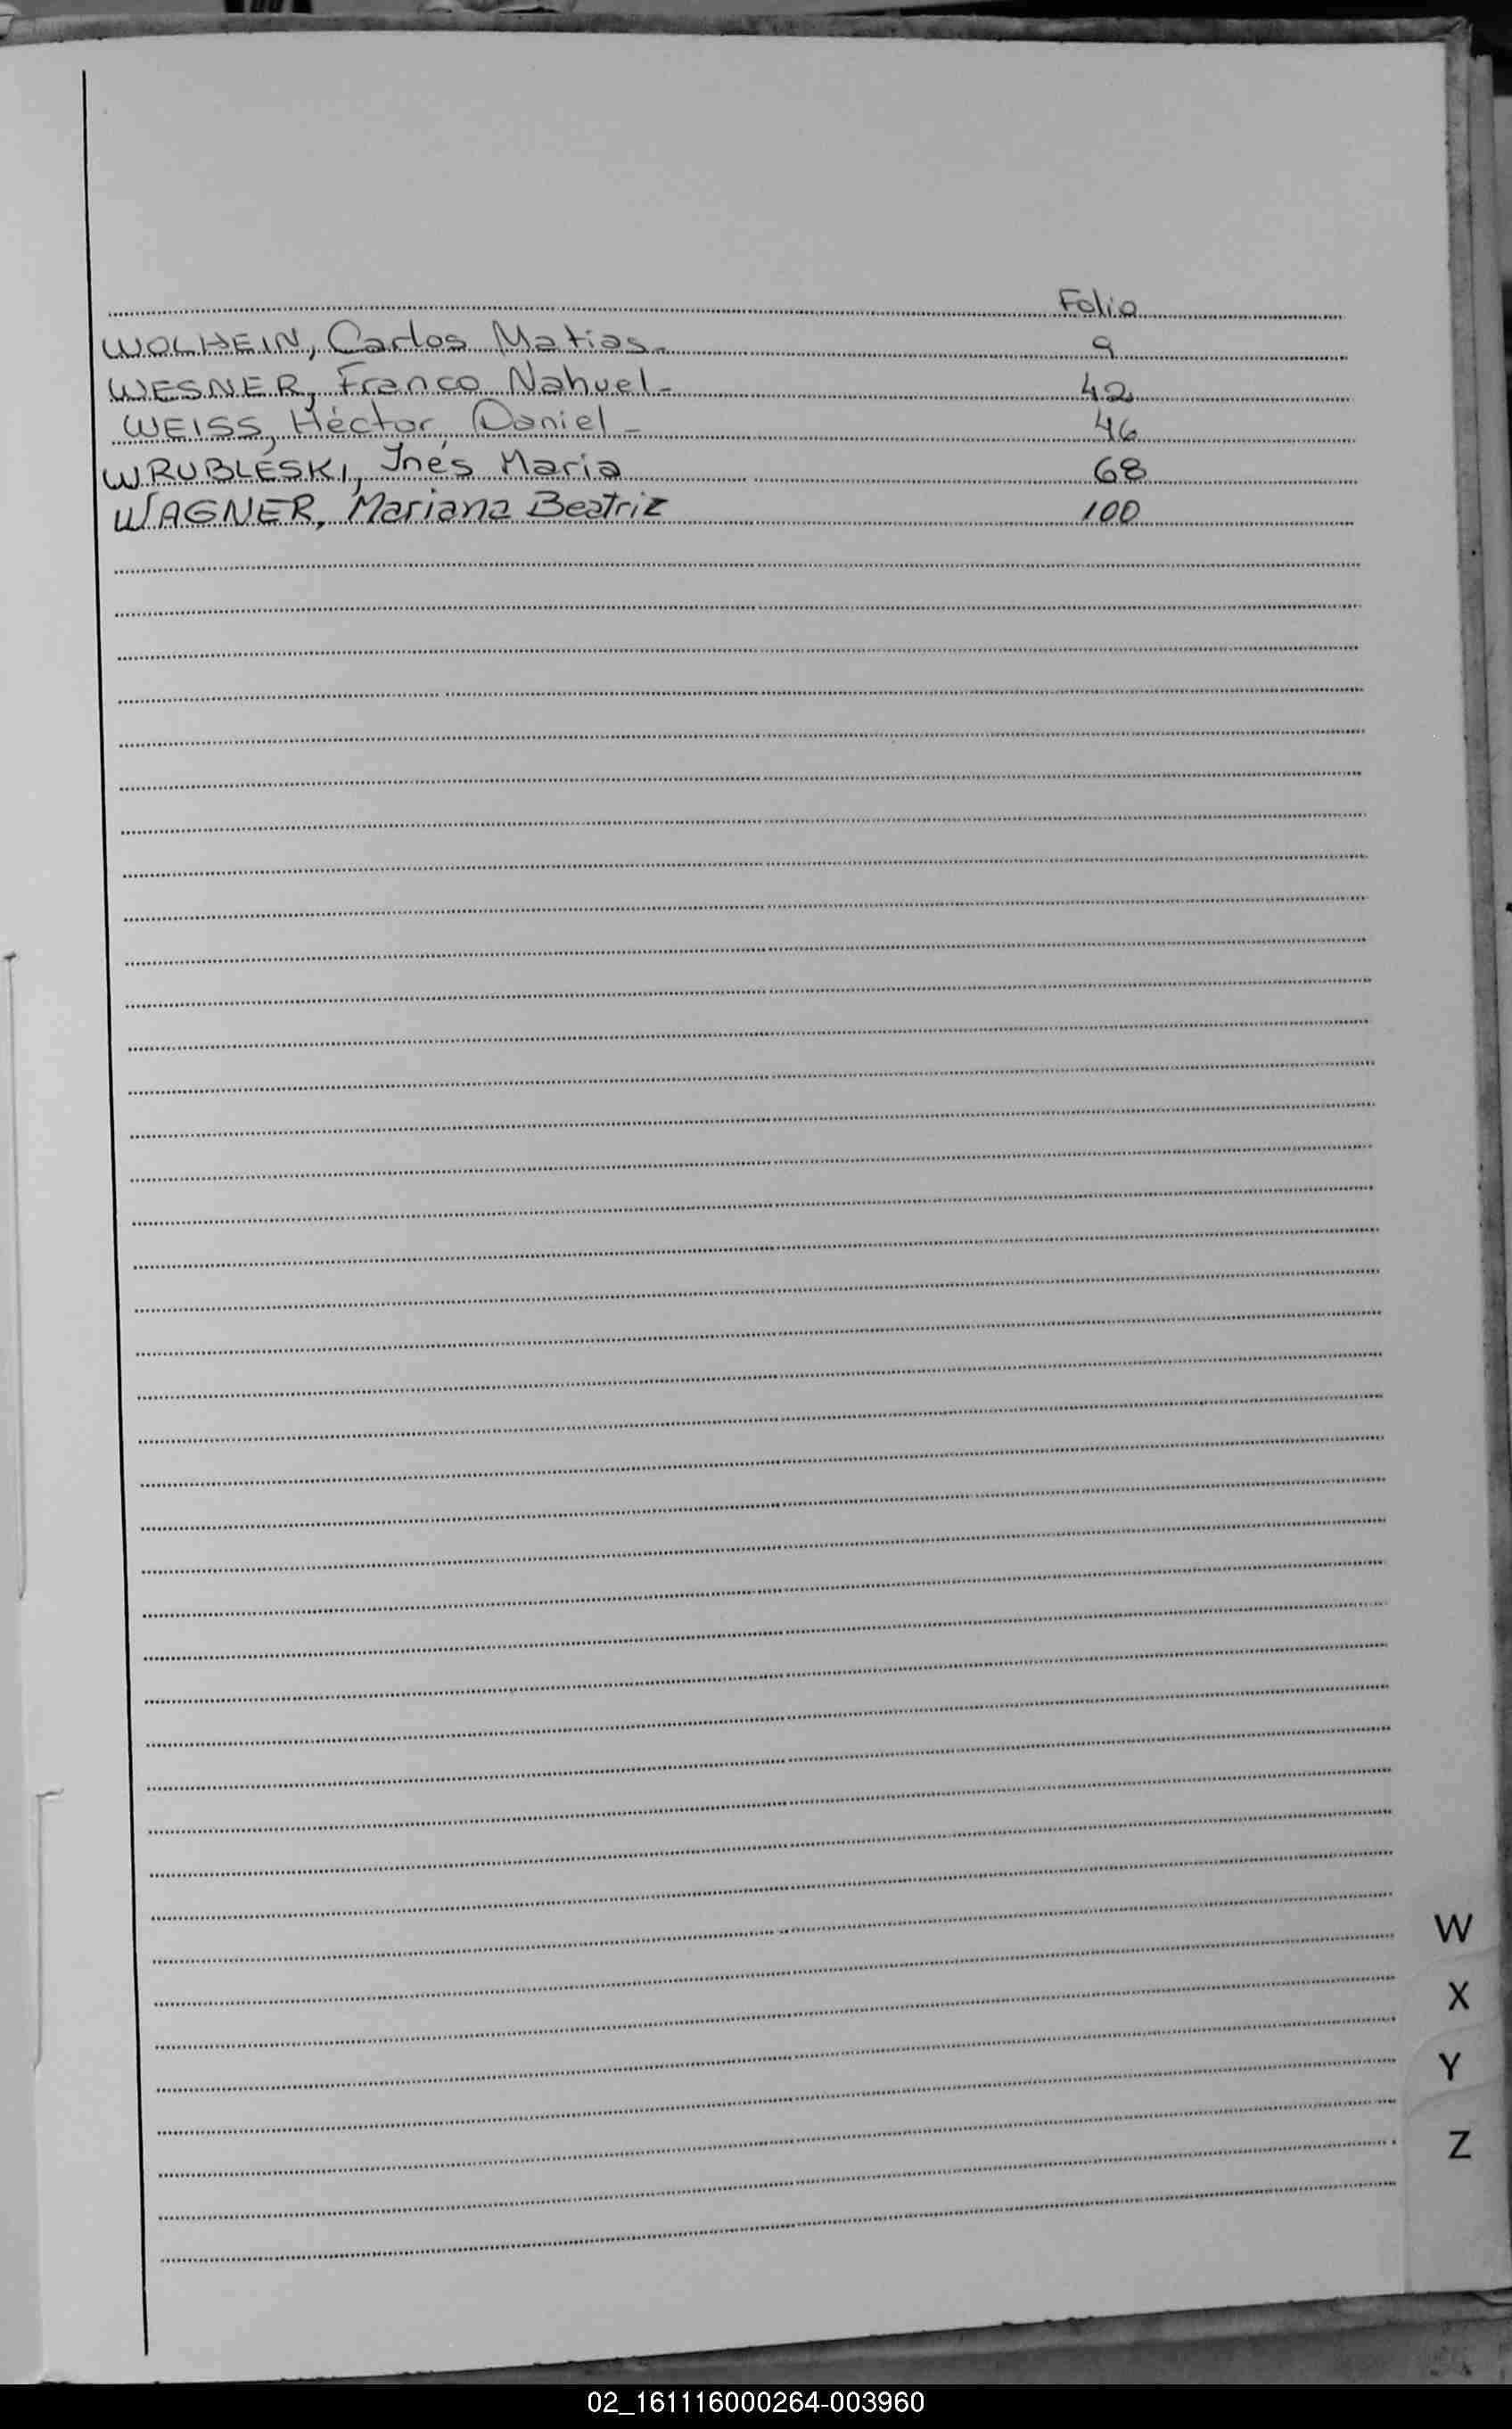 Folio
WOLHEIN, Carlos Matias.- 9
WESNER, Franco Nahuel- 42
WEISS, Héctor Daniel- 46
WRUBLESKI, Inés Maria 68
WAGNER, Mariana Beatriz 100
W
X
Y
Z
02_161116000264-003960